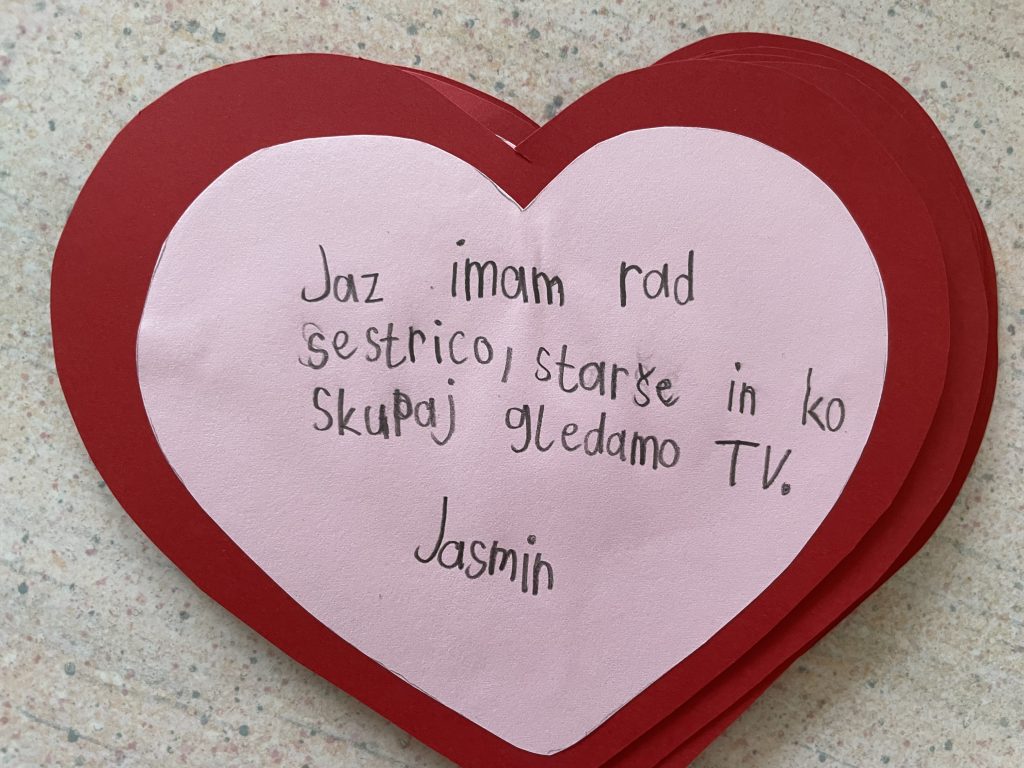 Jaz imam rad
sestrico, starše in ko
skupaj gledamo TV.
Jasmin